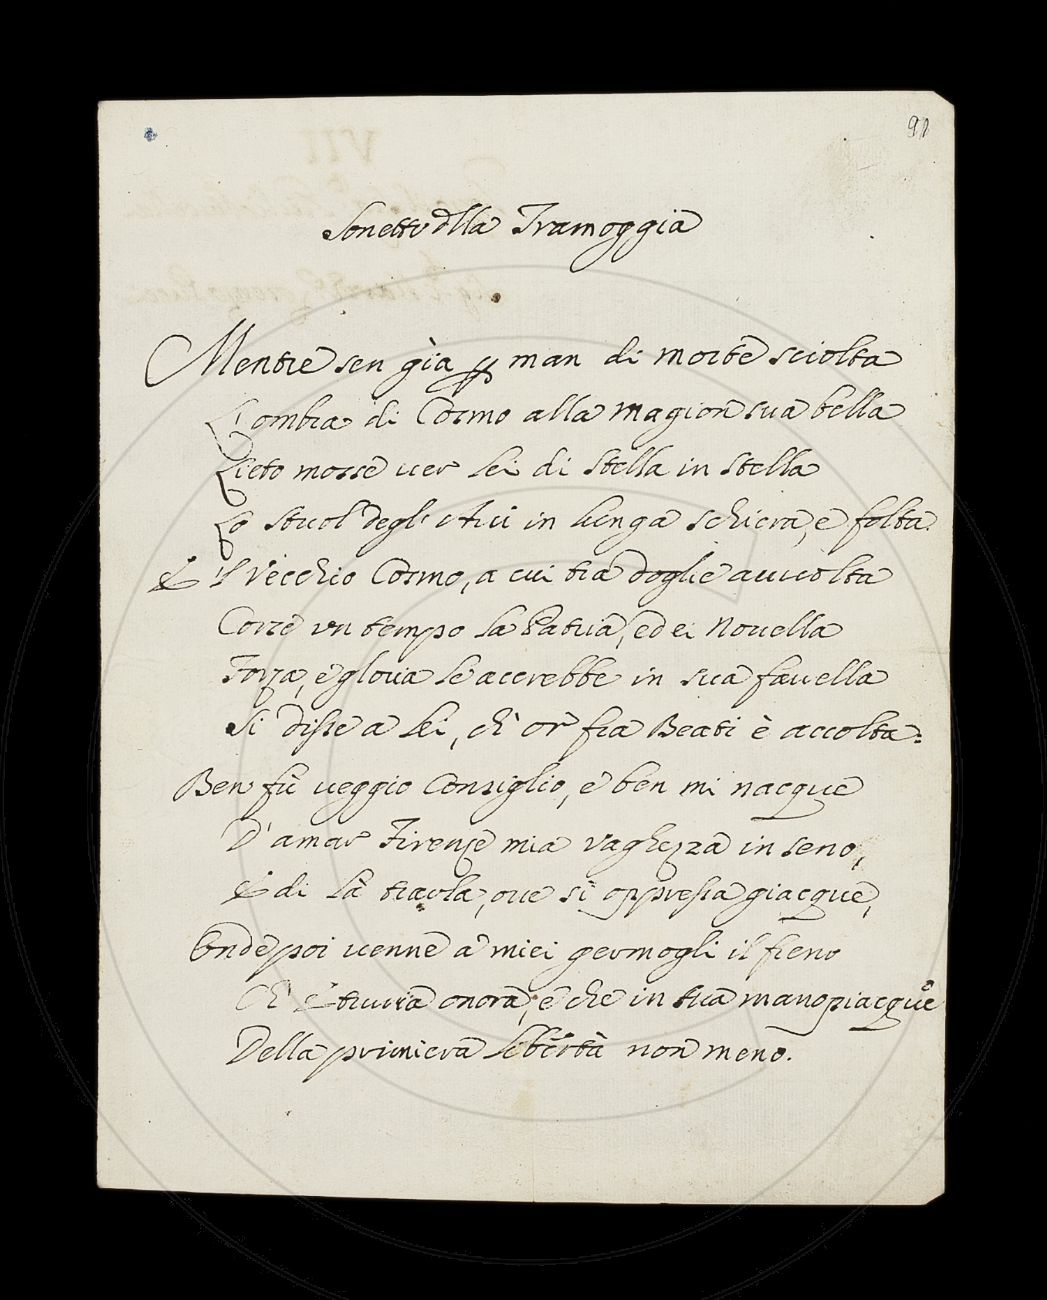 91
Sonetto dlla Tramoggia
Mentre sen gìa p man di morte sciolta
L'ombra di Cosmo alla magion sua bella
Lieto mosse ver lei di stella in stella
Lo stuol degl'Avi in lunga schiera, e folta
E 'l Vecchio Cosmo, a cui tra doglie avvolta
Corse un tempo la Patria, ed ei Novella
Forza, e gloria le accrebbe in sua favella
Si disse a lei, ch'or fra Beati è accolta:
Ben fù veggio Consiglio, e ben mi nacque
D'amar Firenze mia vaghezza in seno,
E di là trarla, ove sì oppressa giacque,
Onde poi venne a' miei germogli il freno
Ch'Etruria onora, e che in tua mano piacque
Della primiera libertà non meno.